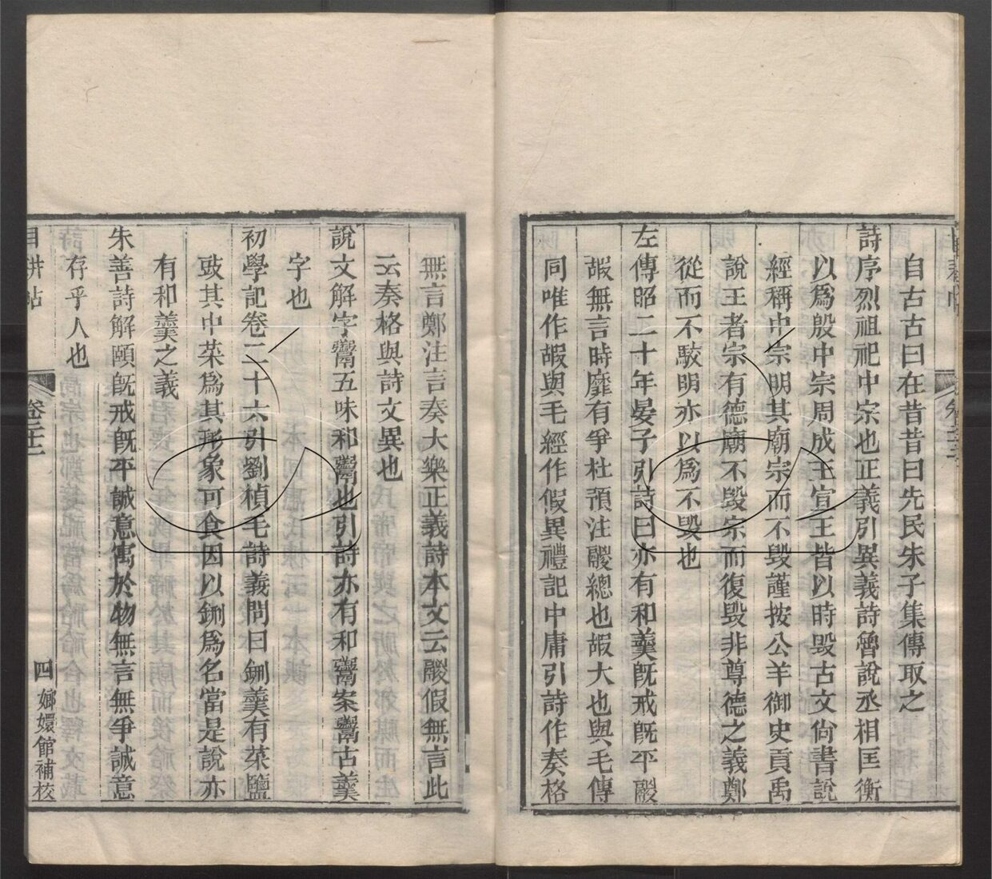 自古古曰在昔昔曰先民朱子集傳取之
詩序烈祖祀中宗也正義引異義詩魯說丞相匡衡
以爲殷中宗周成王宣王皆以時毀古文尙書說
經稱中宗明其廟宗而不毀謹按公羊御史貢禹
說王者宗有德廟不毀宗而復毀非尊德之義鄭
從而不駁明亦以爲不毀也
左傳昭二十年晏子引詩曰亦有和羹旣戒旣平鬷
嘏無言時靡有爭杜預注鬷總也嘏大也與毛傳
同唯作嘏與毛經作假異禮記中庸引詩作奏格
無言鄭注言奏大樂正義詩本文云鬷假無言此
云奏格與詩文異也
說文解字鬻五味和鬻也引詩亦有和鬻案鬻古羹
字也
初學記卷二十六引劉楨毛詩義問曰鉶羹有菜鹽
豉其中菜爲其形象可食因以鉶爲名當是說亦
有和羹之義
朱善詩解頤旣戒旣平誠意寓於物無言無爭誠意
存乎人也
目耕帖
卷三十二
四
嫏嬛館補校